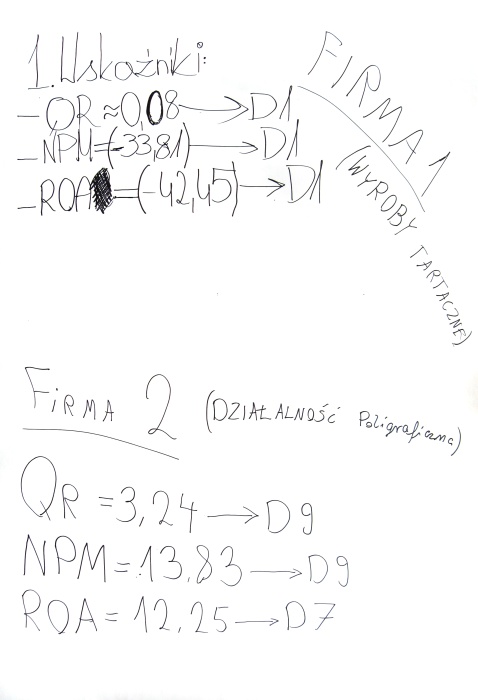 FIRMA 1
(WYROBY TARTACZNE)
1. Wskaźniki:
- QR ≈ 0,08 → D1
- NPM = (-33,81) → D1
- ROA = (-42,45) → D1
FiRMA 2 (DZIAŁALNOŚĆ Poligraficzna)
QR = 3,24 → D9
NPM = 13,83 → D9
ROA = 12,25 → D7